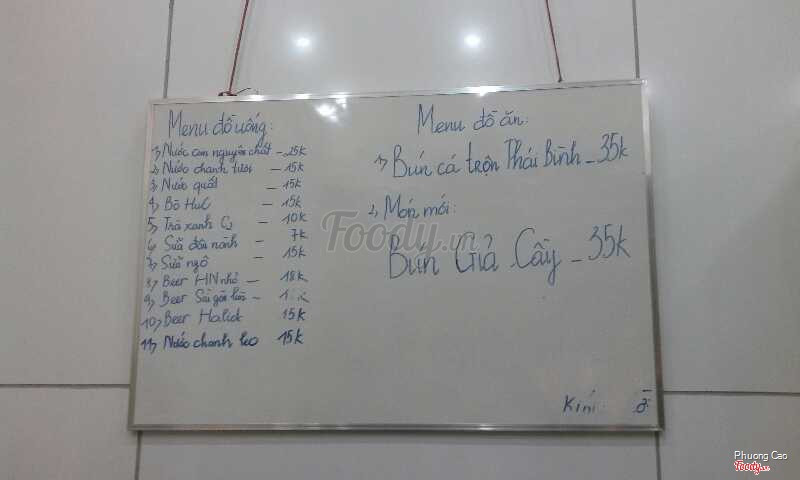 Menu đồ uống:
1, Nước cam nguyên chất - 25k
2, Nước chanh tươi - 15k
3, Nước quất - 15k
4, Bò Húc - 15k
5, Trà xanh C2 - 10k
6, Sữa đậu nành - 7k
7, Sữa ngô - 15k
8, Beer HN nhỏ - 18k
9, Beer Sài gòn -
10, Beer Halida 15k
11, Nước chanh leo 15k
Menu đồ ăn:
1, Bún cá trộn Thái Bình - 35k
2, Món mới:
Bún Giả Cầy - 35k
Foody.vn
Phuong Cao
Foody.vn